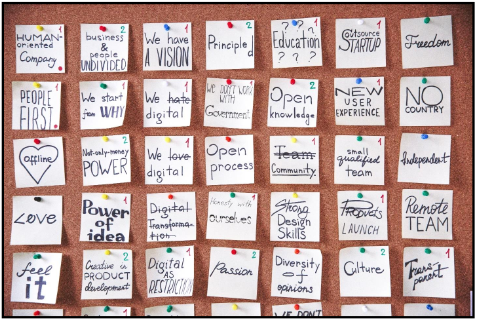 HUMAN-
oriented
Company.
1
business
&
people
UNDIVIDED
2
We have
A VISION
1
Principled
2
? ?
Education
? ? ?
1
Outsource
STARTUP
1
Freedom
PEOPLE
FIRST.
1
We start
from WHY
2
We hate
digital
1
We DON'T WORK
WITH
Government
2
Open
knowledge
2
NEW
USER
EXPERIENCE
1
NO
COUNTRY
offline
1
Not-only-money
POWER
2
We love
digital
1
Open
process
Team
Community
1
small
qualified
team
2
Independent
Love
Power
of
idea
2
Digital
Transforma-
tion
1
Honesty with
ourselves
1
Strong
Design
Skills
Products
LAUNCH
1
Remote
TEAM
feel
it
1
Creative in
PRODUCT
development
2
Digital
AS
RESTRICTION
1
Passion
2
Diversity
of
opinions
Culture
2
Trans-
parent
1
WE DON'T